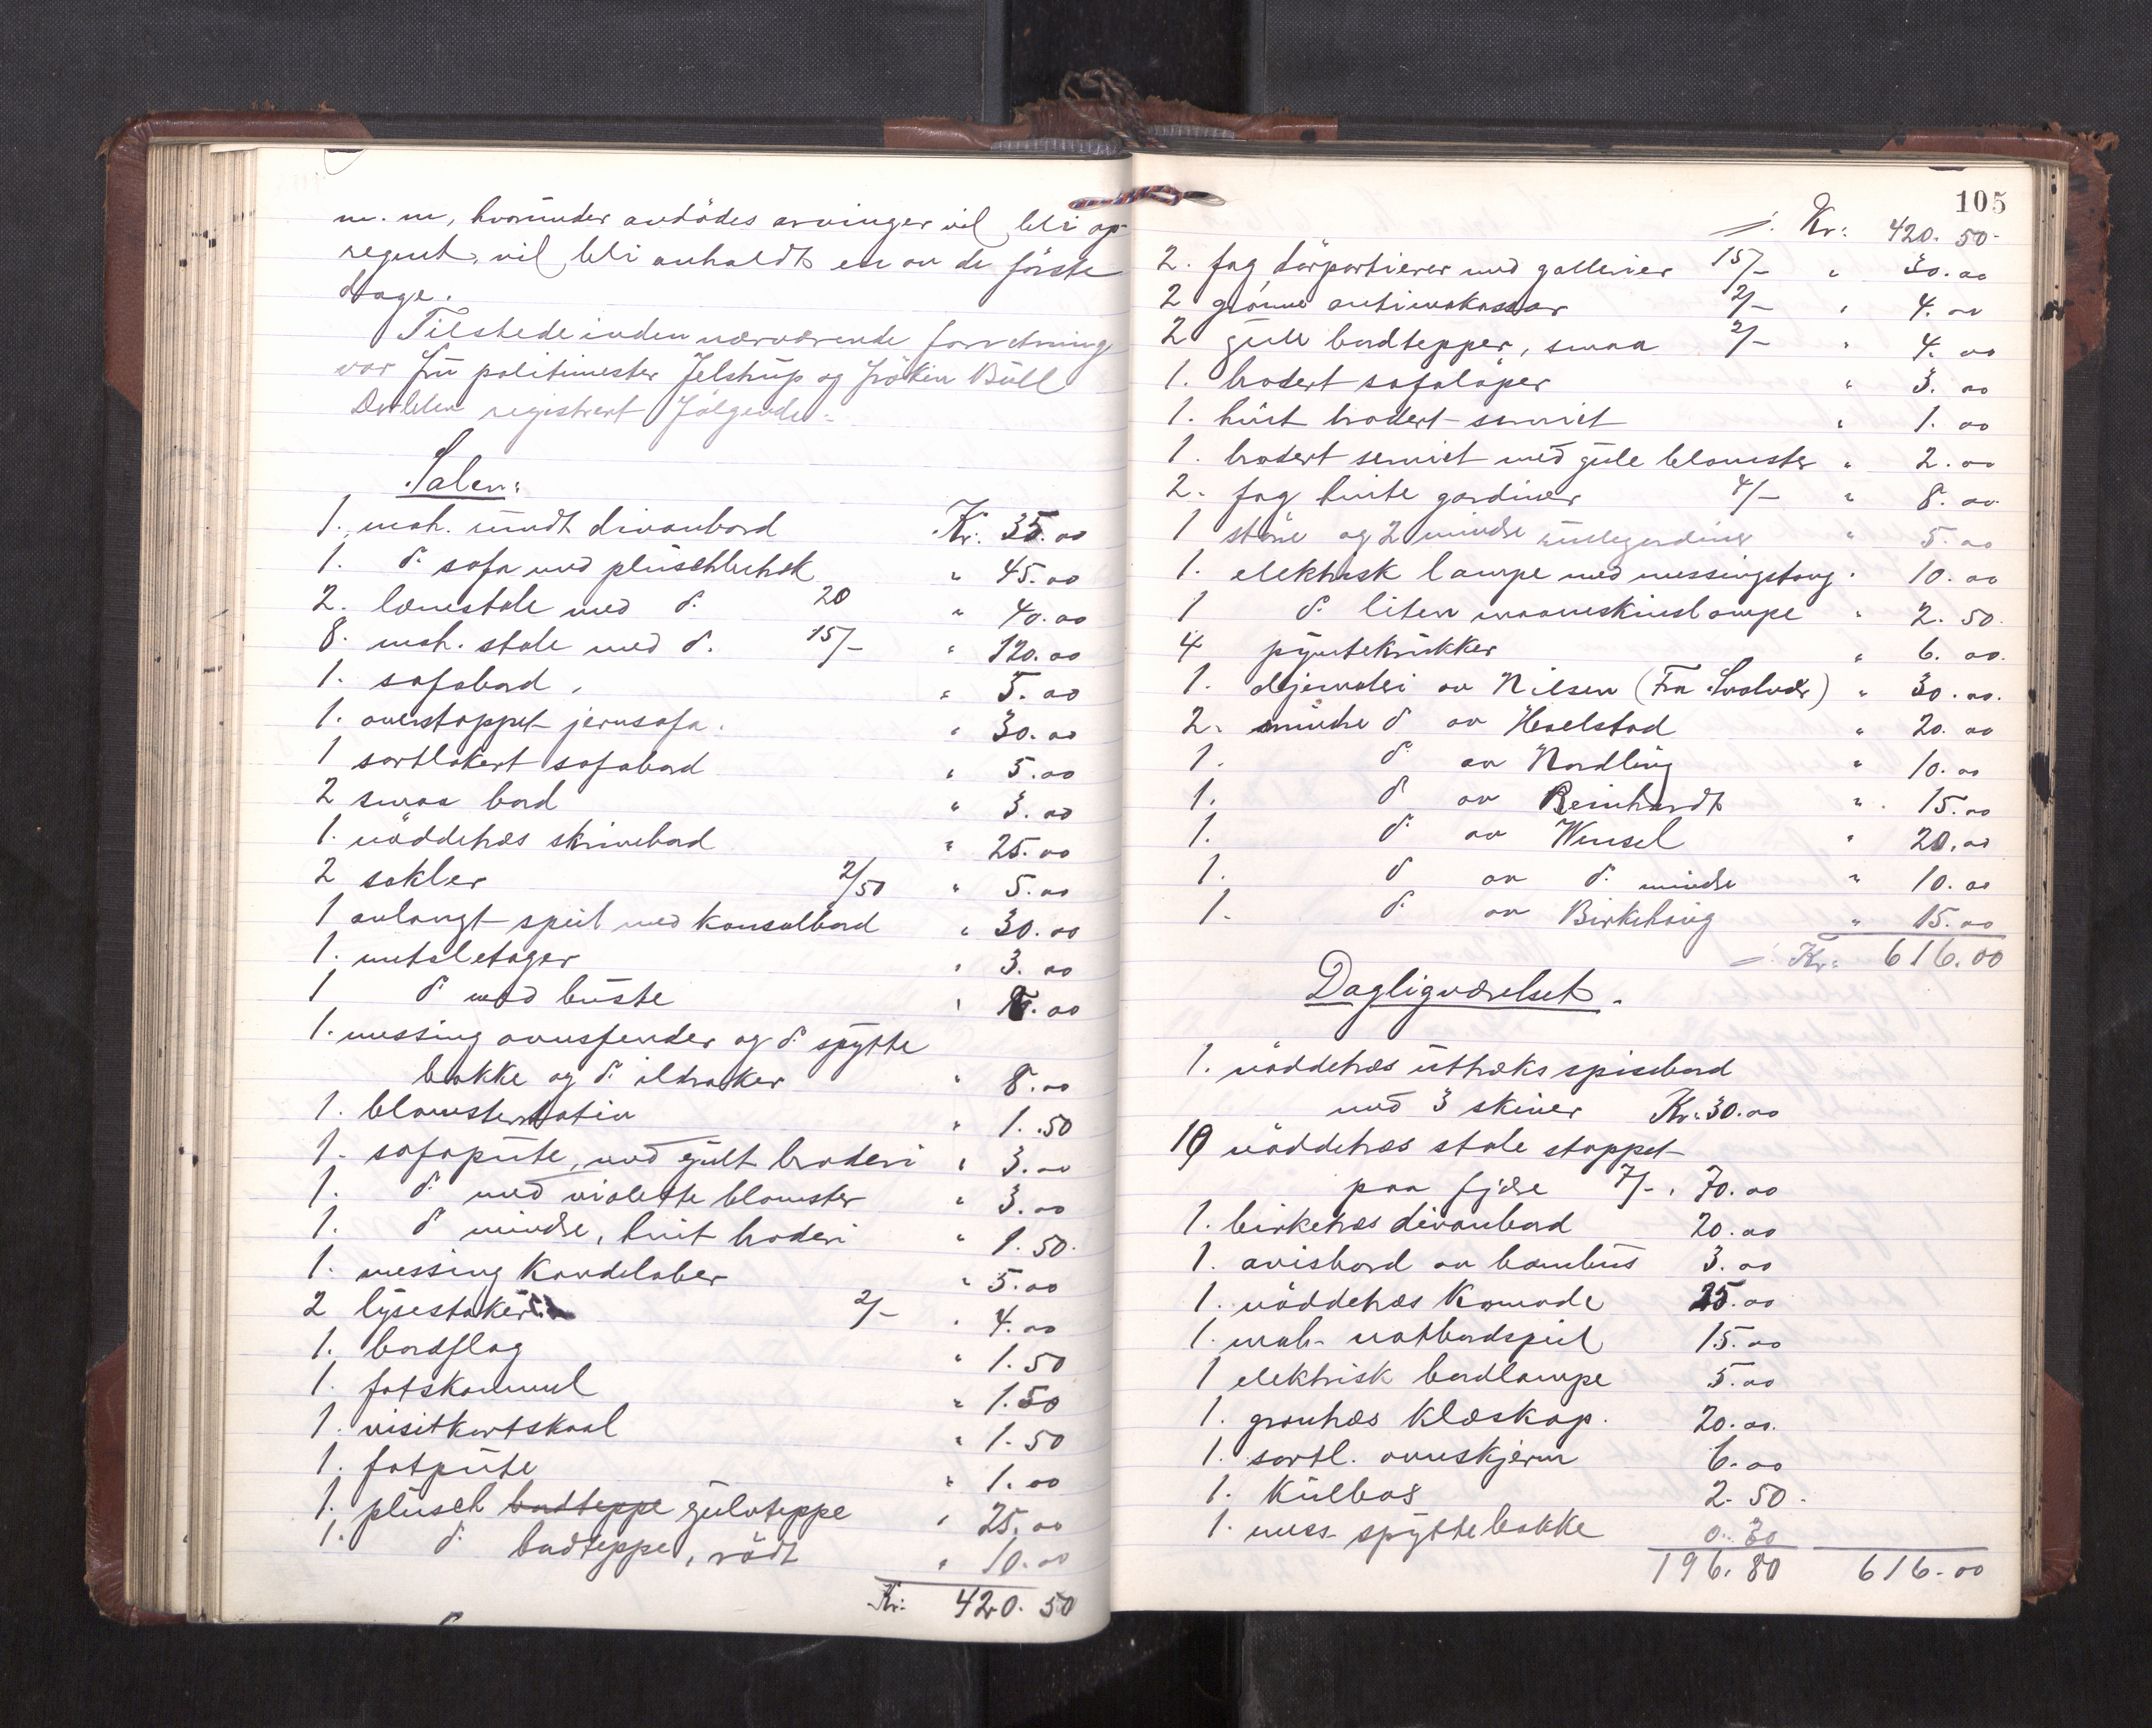 m. m, hvorunder avdödes arvinger vil bli op-
regnet, vil bli anholdt en av de förste
dage.
Tilstede inden nærværende forretning
var fru politimester Jelstrup og fröken Bull
Derefter registrert følgende:
Salen:
1. mah. rundt divanbord Kr. 35.00
1. d. sofa med plüschbetræk " 45.00
2. lænestole med d. 20 " 40.00
8. mah. stole med d. 15/- " 120.00
1. sofabord. " 5.00
1. overstoppet jernsofa. " 30.00
1 sortlakert sofabord " 5.00
2 smaa bord " 3.00
1. nöddetræs skrivebord " 25.00
2 sokler 2/50 " 5.00
1 avlangt speil med konsolbord " 30.00
1. notsletager " 3.00
1 d. med büste " .00
1. messing ovnsfender og d. spytte
bakke og d. ildraker " 8.00
1. blomsterstativ " 1.50
1. sofapüte, med gult broderi " 3.00
1. d. med violette blomster " 3.00
1. d. mindre, hvit broderi " 1.50.
1. messing kandelaber " 5.00
2 lysestaker 2/- " 4.00
1. bordflag " 1.50
1. fotskammel " 1.50
1. visitkortskaal " 1.50
1. fotpüte " 1.00
1. plüsch bordteppe gulvteppe " 25.00
1. d. bordteppe, rödt " 10.00
Kr: 420.50
105
Kr: 420.50
2. fag dörportierer med gallerier 15/- " 30.00
2 grönne antimakassar 2/- " 4.00
2 gule bordtepper, smaa 2/- " 4.00
1. brodert sofalöper " 3.00
1. hvit brodert serviet " 1.00
1. brodert serviet med gule blomster " 2.00
2. fag hvite gardiner 4/- " 8.00
1 störe og 2 mindre rullegardiner " 5.00
1. elektrisk lampe med messingstang " 10.00
1 d. liten maaneskinslampe " 2.50.
4 pyntekrukker " 6.00.
1. oljemaleri av Nilsen (Fra Svolvær) " 30.00.
2. mindre d. av Hvelstad " 20.00
1. d. av Nordling " 10.00
1. d. av Reinhardt " 15.00
1. d. av Wensel " 20.00
1. d. av d. mindre " 10.00
1. d. av Birkehaug " 15.00
Kr: 616.00
Dagligværelset.
1. nöddetræs uttræks spisebord
med 3 skiver Kr. 30.00
10 nöddetræs stole stoppet
paa fjære 7/- " 70.00
1. birketræs divanbord 20.00
1. avisbord av bambus 3.00
1. nöddetræs Komode 25.00
1. mah. notbordspeil 15.00
1 elektrisk bordlampe 5.00
1. grantræs klæskap. 20.00.
1. sortl. ovnskjerm 6.00
1. Kulboks 2.50.
1. mess. spyttebakke 0.30
196.80 616.00